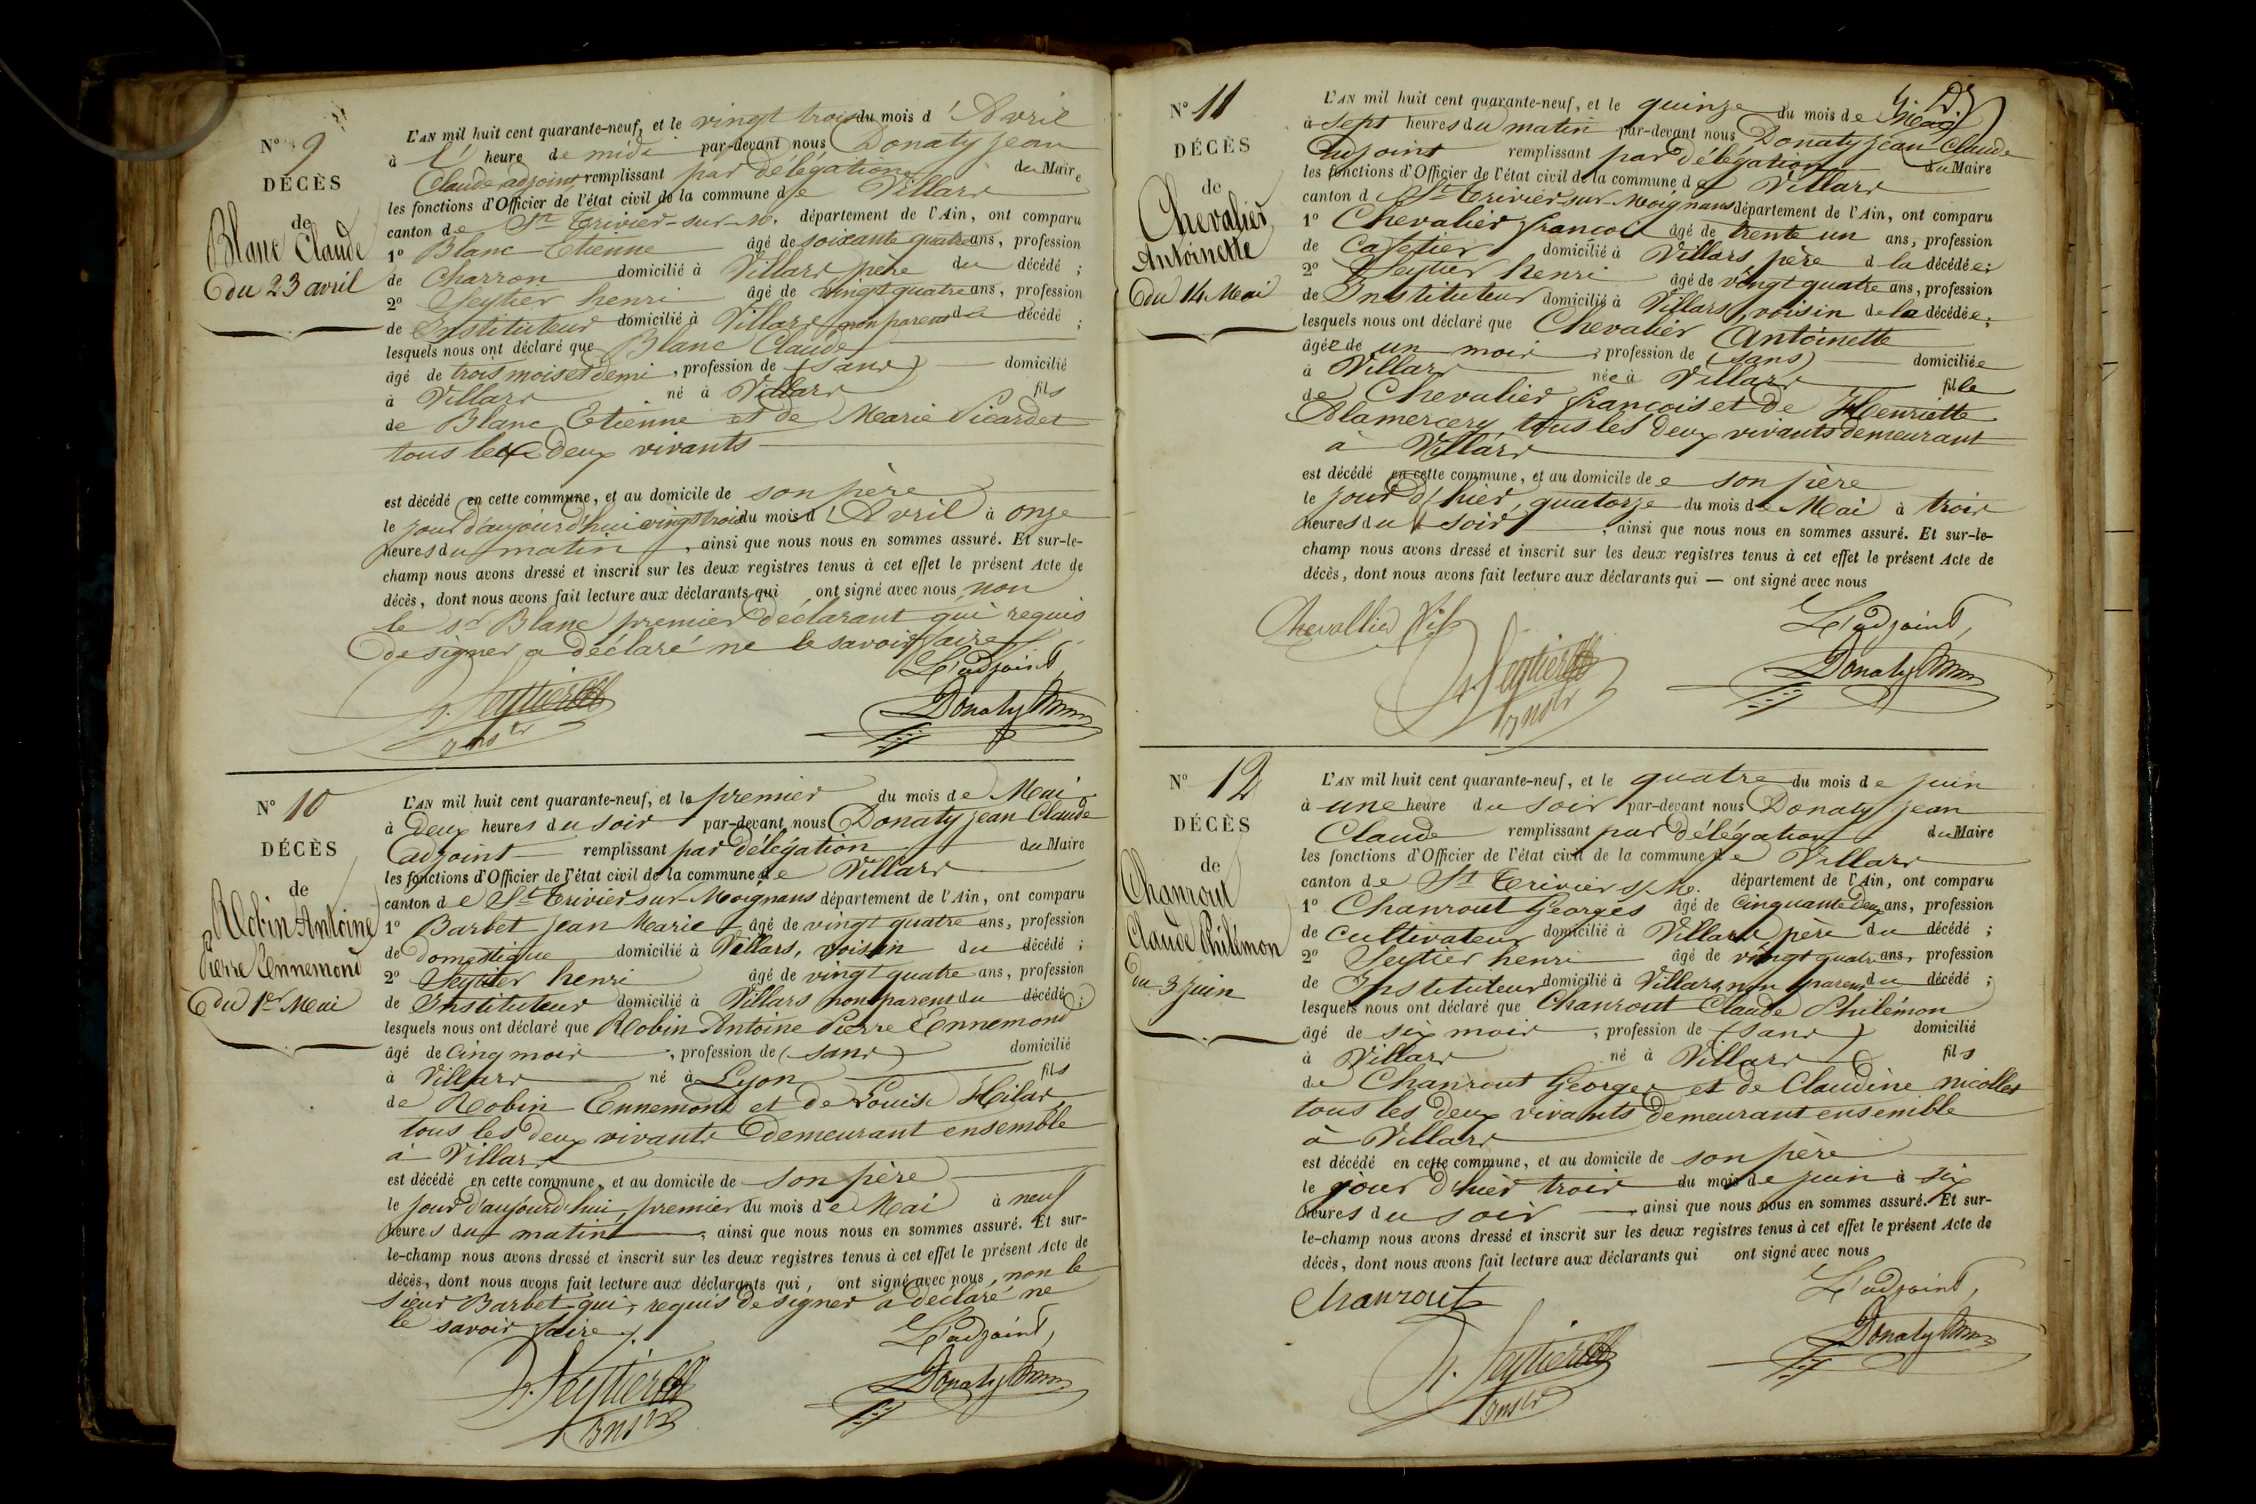 N° 9
DÉCÈS
de
Blanc Claude
du 23 avril
L'AN mil huit cent quarante-neuf, et le vingt trois du mois d'Avril
à l' heure de midi par-devant nous Donaty jean
Claude, adjoint remplissant par délégation du Maire
les fonctions d'Officier de l'état civil de la commune de Villars
canton de St Trivier-sur-M. département de l'Ain, ont comparu
1° Blanc Etienne âgé de soixante quatre ans, profession
de Charron domicilié à Villars père du décédé ;
2° Seytier henri âgé de vingt quatre ans, profession
de Instituteur domicilié à Villars, non parent du décédé ;
lesquels nous ont déclaré que Blanc Claude
âgé de trois mois et demi, profession de (sans) domicilié
à Villars né à Villars fils
de Blanc Etienne et de Marie Picardet
tous les deux vivants
est décédé en cette commune, et au domicile de son père
le jour d'aujourd'hui vingt trois du mois d'Avril à onze
heures du matin, ainsi que nous nous en sommes assuré. Et sur-le-
champ nous avons dressé et inscrit sur les deux registres tenus à cet effet le présent Acte de
décès, dont nous avons fait lecture aux déclarants qui ont signé avec nous, non
le sr Blanc premier déclarant qui requis
de signer a déclaré ne le savoir faire
L'adjoint,
h. Seytier
Instr
Donaty
N° 10
DÉCÈS
de
Robin Antoine
Pierre Ennemond
du 1er Mai
L'AN mil huit cent quarante-neuf, et le premier du mois de Mai
à Deux heures du soir par-devant nous Donaty jean Claude
adjoint remplissant par délégation du Maire
les fonctions d'Officier de l'état civil de la commune de Villars
canton de St Trivier-sur-Moignans département de l'Ain, ont comparu
1° Barbet jean Marie âgé de vingt quatre ans, profession
de domestique domicilié à Villars, voisin du décédé ;
2° Seytier henri âgé de vingt quatre ans, profession
de Instituteur domicilié à Villars non parent du décédé ;
lesquels nous ont déclaré que Robin Antoine Pierre Ennemond
âgé de Cinq mois, profession de (sans) domicilié
à Villars né à Lyon fils
de Robin Ennemond et de Louise Hilar
tous les deux vivants demeurant ensemble
à Villars
est décédé en cette commune, et au domicile de son père
le jour d'aujourd'hui, premier du mois de Mai à neuf
heures du matin, ainsi que nous nous en sommes assuré. Et sur-
le-champ nous avons dressé et inscrit sur les deux registres tenus à cet effet le présent Acte de
décès, dont nous avons fait lecture aux déclarants qui, ont signé avec nous, non le
sieur Barbet qui, requis de signer a déclaré ne
le savoir faire
L'adjoint,
h. Seytier
Instr
Donaty
N° 11
DÉCÈS
de
Chevalier
Antoinette
du 14 Mai
L'AN mil huit cent quarante-neuf, et le quinze du mois de Mai
à Sept heures du matin par-devant nous Donaty jean Claude
adjoint remplissant par délégation du Maire
les fonctions d'Officier de l'état civil de la commune de Villars
canton de St Trivier-sur-Moignans département de l'Ain, ont comparu
1° Chevalier françois âgé de trente un ans, profession
de Cafetier domicilié à Villars, père de la décédée ;
2° Seytier henri âgé de vingt quatre ans, profession
de Instituteur domicilié à Villars, voisin de la décédée ;
lesquels nous ont déclaré que Chevalier Antoinette
âgée de un mois, profession de (sans) domiciliée
à Villars née à Villars fille
de Chevalier françois et de Henriette
Alamercery, tous les deux vivants demeurant
à Villars
est décédé en cette commune, et au domicile de son père
le jour d'hier, quatorze du mois de Mai à trois
heures du soir, ainsi que nous nous en sommes assuré. Et sur-le-
champ nous avons dressé et inscrit sur les deux registres tenus à cet effet le présent Acte de
décès, dont nous avons fait lecture aux déclarants qui — ont signé avec nous
Chevallier fils
L'adjoint,
h. Seytier
Instr
Donaty
N° 12
DÉCÈS
de
Chanrout
Claude Philémon
du 3 juin
L'AN mil huit cent quarante-neuf, et le quatre du mois de juin
à une heure du soir par-devant nous Donaty jean
Claude remplissant par délégation du Maire
les fonctions d'Officier de l'état civil de la commune de Villars
canton de St Trivier s/M. département de l'Ain, ont comparu
1° Chanrout Georges âgé de Cinquante deux ans, profession
de cultivateur domicilié à Villars père du décédé ;
2° Seytier henri âgé de vingt quatre ans, profession
de Instituteur domicilié à Villars, non parent du décédé ;
lesquels nous ont déclaré que Chanrout Claude Philémon
âgé de six mois, profession de (sans) domicilié
à Villars né à Villars fils
de Chanrout Georges et de Claudine nicollet
tous les deux vivants demeurant ensemble
à Villars
est décédé en cette commune, et au domicile de son père
le jour d'hier trois du mois de juin à six
heures du soir, ainsi que nous nous en sommes assuré. Et sur-
le-champ nous avons dressé et inscrit sur les deux registres tenus à cet effet le présent Acte de
décès, dont nous avons fait lecture aux déclarants qui ont signé avec nous
Chanrout
L'adjoint,
h. Seytier
Instr
Donaty